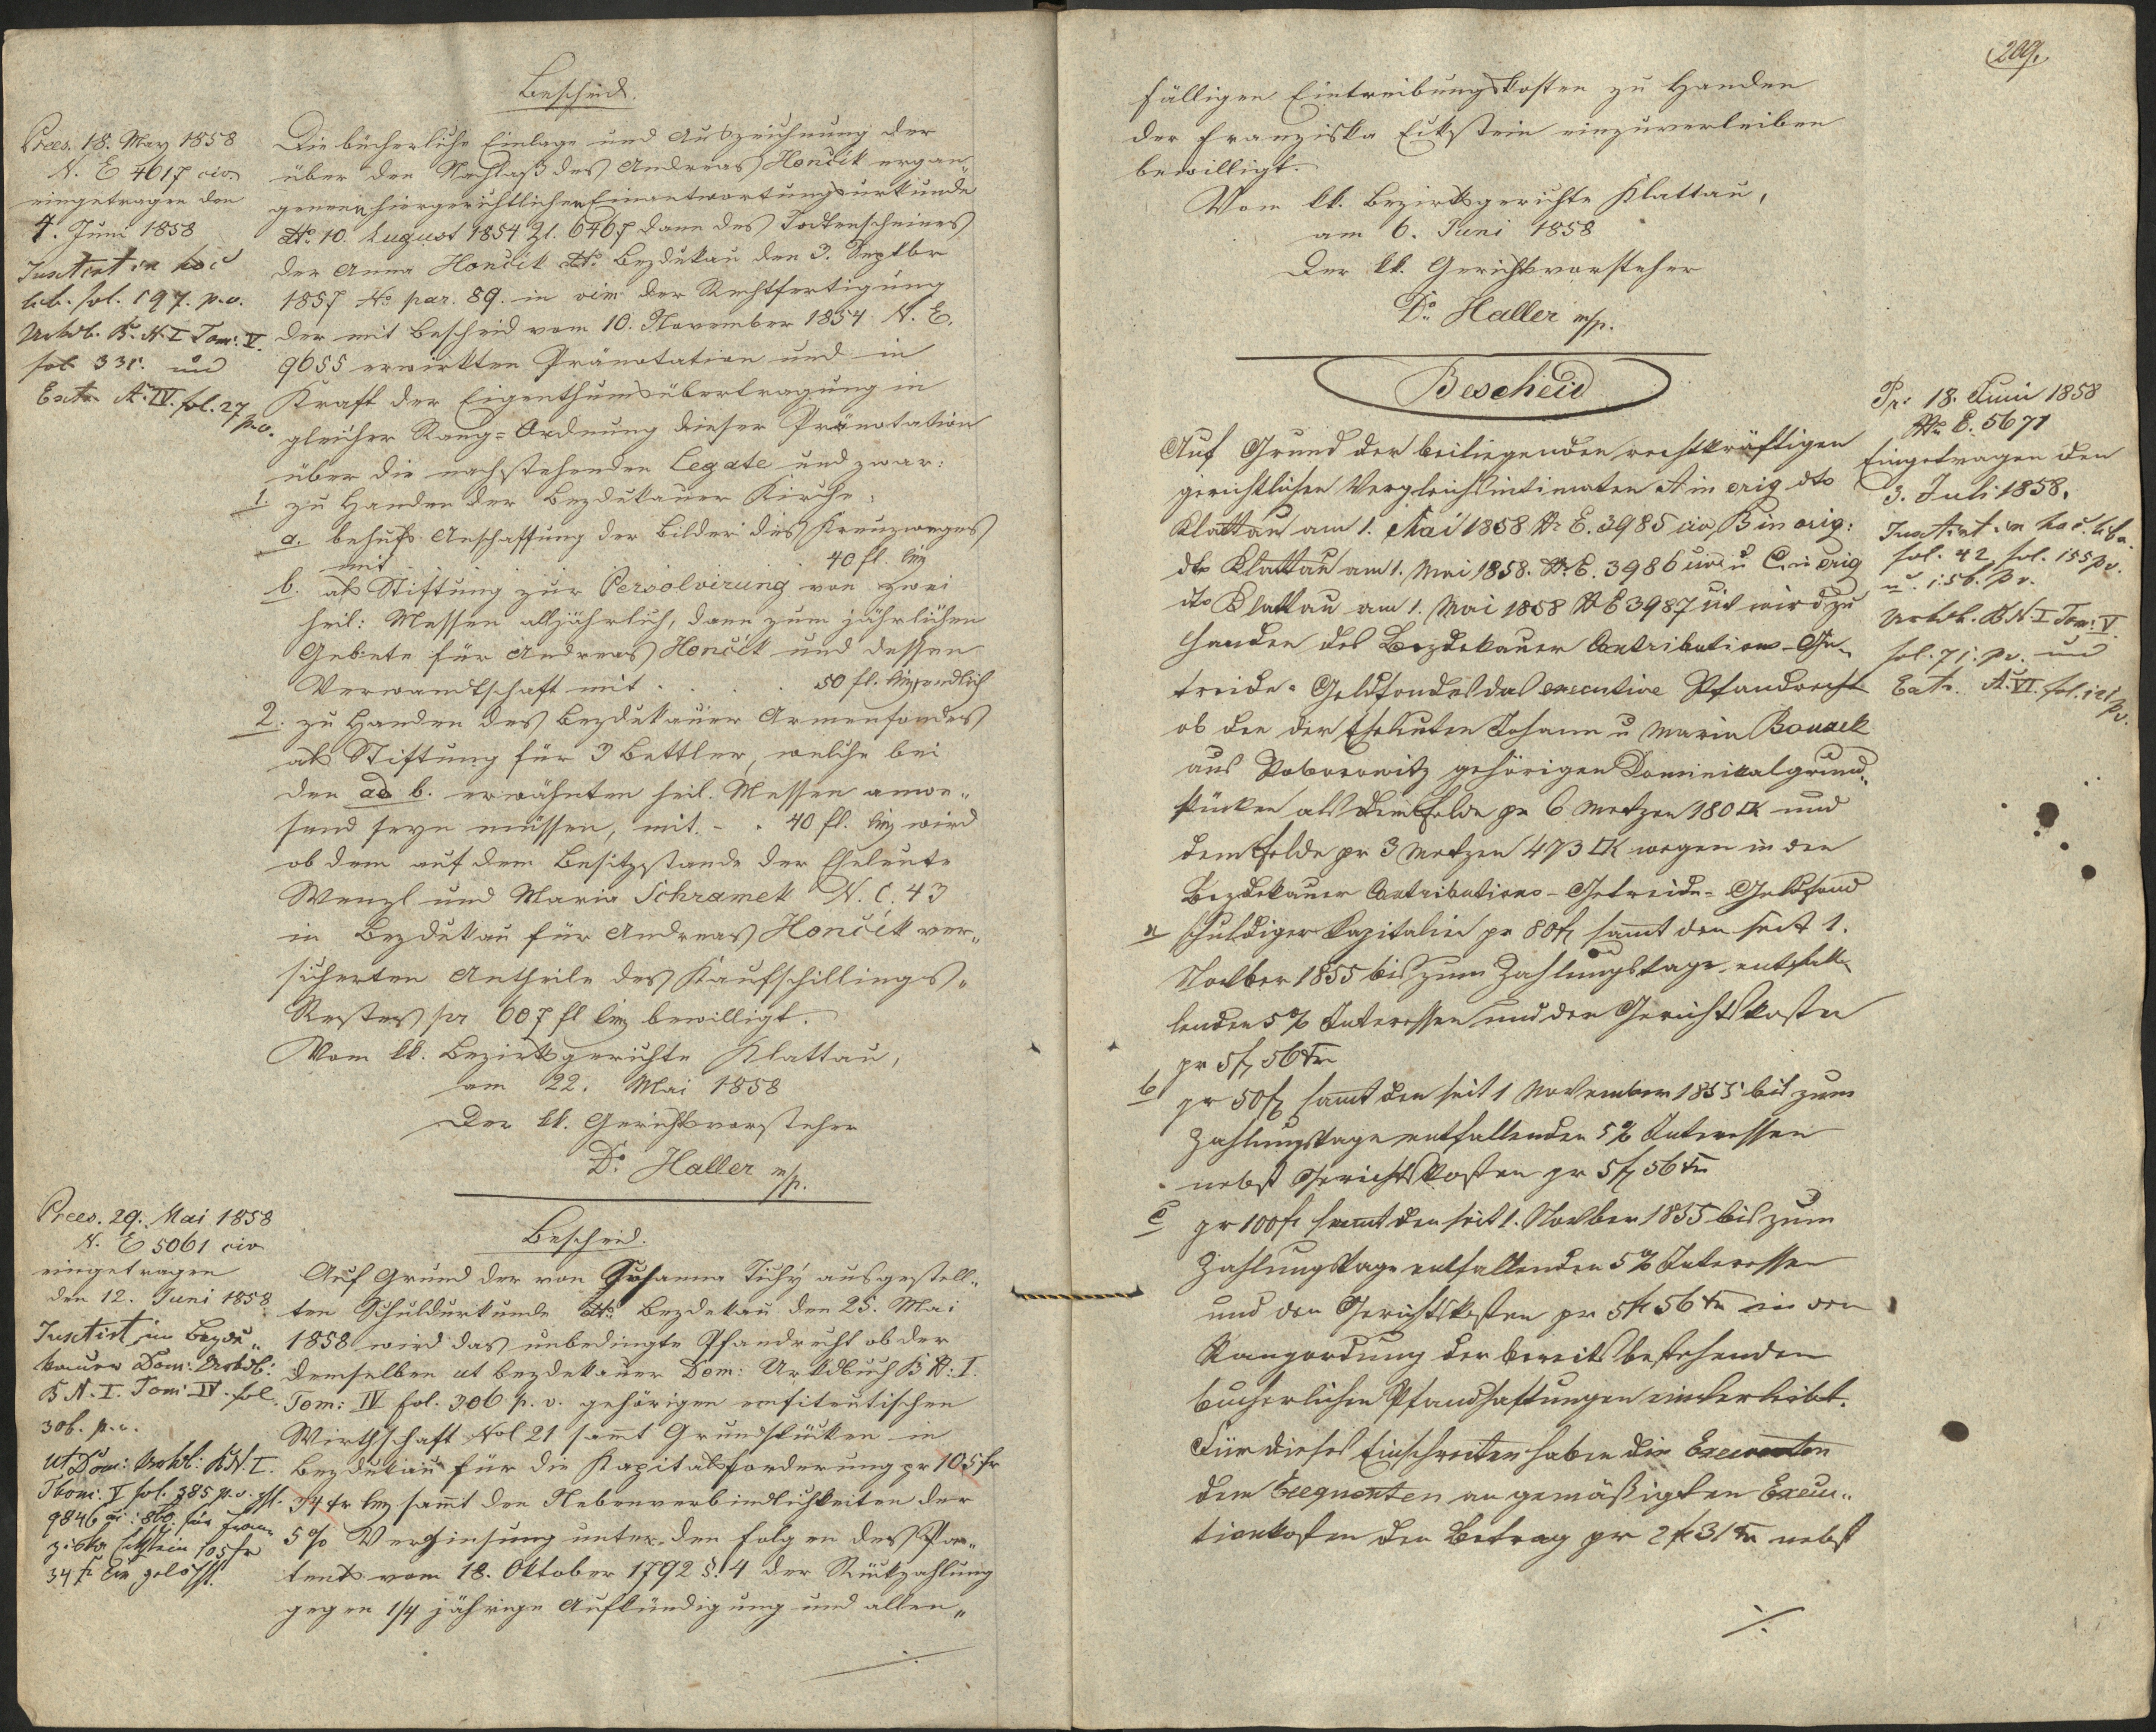 Bescheid.
Praes. 18. May 1858
N. E 4617 civ.
eingetragen den
4. Juni 1858
Instirt in hoc
lib. fol. 197. p. v.
Urkdb. B. N. I Tom. V.
fol. 331. und
Extr. A. IV. fol. 27
p. v.
Die bücherliche Einlage und Auszeichnung der
über den Nachlaß des Andreas Hončik ergan
genen hiergerichtlichen Einantwortungsurkunde
dto. 10. August 1854 Zl. 6467 dann des Todtenscheines
der Anna Hončik dto. Bezdekau den 3. Septbr
1857 No. par. 89. in vim der Rechtfertigung
der mit Bescheid vom 10. November 1854 N. E.
9655 erwirkten Pränotation und in
Kraft der Eigenthumsübertragung in
gleicher Rang=Ordnung dieser Pränotation
über die nachstehenden Legate und zwar:
1. zu Handen der Bezdekauer Kirche:
a. behufs Anschaffung der Bilder des Kreuzweges
mit . . . 40 fl.
b. als Stiftung zur Persolvirung von zwei
heil: Messen alljährlich, dann zum jährlichen
Gebete für Andreas Hončik und dessen
Verwandtschaft mit . . . . 50 fl. endlich
2. zu Handen des Bezdekauer Armenfondes
als Stiftung für 3 Bettler, welche bei
den ad b. erwähnten heil. Messen anwe„
send seyn müssen, mit . - . 40 fl. wird
ob dem auf dem Besitzstande der Eheleute
Wenzl und Maria Schramek N. C. 43
in Bezdekau für Andreas Hončik ver„
sicherten Antheile des Kaufschillings„
Restes pr 607 fl bewilligt.
Vom kk. Bezirksgerichte Klattau,
am 22. Mai 1858
Der kk. Gerichtsvorsteher
Dr. Haller m/p.
Bescheid.
Praes. 29. Mai 1858
N. E 5061 civ
eingetragen
den 12. Juni 1858
Instirt im Bezde„
kauer Dom: Urkdb:
B N. I. Tom: IV. fol.
306. p. v.
Ut Dom: Urkdb: B N. I.
Thom. V fol. 385 p. v.
9846 für Fran
ziska Eckstein 105 fr
34 gelöscht.
Auf Grund der von Susanna Tichý ausgestell„
ten Schuldurkunde dto. Bezdekau den 25. Mai
1858 wird das unbedingte Pfandrecht ob der
demselben ut Bezdekauer Dom: Urkdbuch B N: I.
Tom: IV fol. 306 p. v. gehörigen emfiteutischen
Wirthschaft No 21 sammt Grundstücken in
Bezdekau für die Kapitalsforderung pr 105 fr
34 sammt den Nebenverbindlichkeiten der
5 % Verzinsung unter den Folgen des Pa„
tents vom 18. Oktober 1792 §. 4 der Rückzahlung
gegen 1/4 jährige Aufkündigung und allen„
./.
209.
fälligen Eintreibungskosten zu Handen
der Franziska Eckstein einzuverleiben
bewilligt.
Vom kk. Bezirksgerichte Klattau,
am 6. Juni 1858
Der kk. Gerichtsvorsteher
Dr. Haller m/p.
Bescheid
Pr: 18. Juni 1858
Nr. E. 5671
Eingetragen den
3. Juli 1858.
Instirt in hoc lib.
fol. 42, fol. 155 pv.
u. 156. p v.
Urkdb. B N. I Tom: V.
fol. 71. pv. und
Extr. A. VI. fol. 121
pv.
Auf Grund der beiliegenden rechtkräftigen
gerichtlichen Vergleichsintimaten A in orig dto
Klattau am 1. Mai 1858 Nr E. 3985 civ, B in orig:
dto Klattau am 1. Mai 1858. Nr. E. 3986 civ u C. in orig
dto Klattau am 1. Mai 1858 Nr E 3987 civ wird zu
Handen des Bezdekauer Contributions-Ge„
treide-Geldfondes das executive Pfandrecht
ob den der Eheleuten Johann u Maria Bouzek
aus gehörigen Dominikalgrund„
stücken als dem Felde pr 6 Metzen 180 □K und
dem Felde pr 3 Metzen 473 □K wegen in den
Bezdekauer Contributions-Getreide-Geldfond
a schuldiger Kapitalien pr 80 fl sammt den seit 1.
November 1855 bis zum Zahlungstage entfal„
lenden 5 % Interessen und der Gerichtskosten
pr 5 fl 56 Kr
b pr 50 fl sammt den seit 1 November 1855 bis zum
Zahlungstage entfallenden 5 % Interessen
nebst Gerichtskosten pr 5 fl 56 Kr
c pr 100 fl sammt den seit 1. November 1855 bis zum
Zahlungstage entfallenden 5 % Interessen
und den Gerichtskosten pr 5 fl 56 Kr in den
Rangordung der bereits bestehenden
bucherlichen Pfandhaftungen einverleibt.
Für dieses Einschreiten haben die Executen
dem Exequenten an gemäßigten Execu„
tionkosten den Betrag pr 2 fl 31 Kr nebst
./.